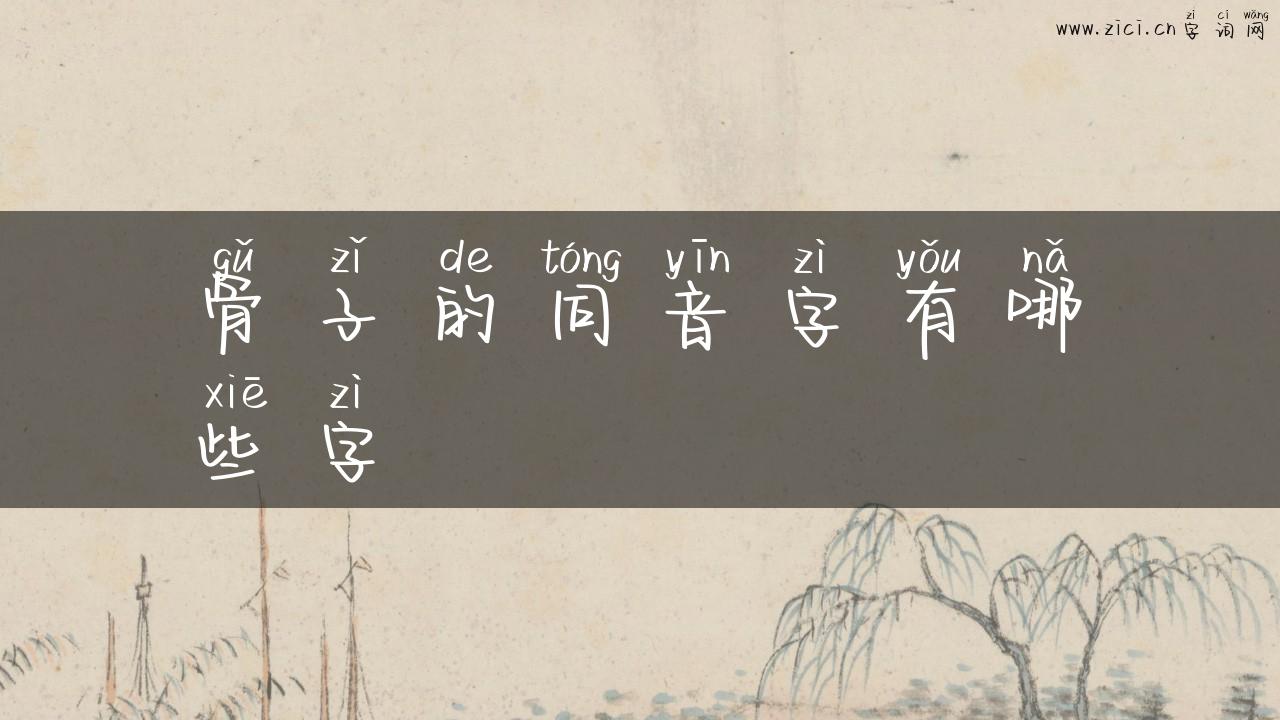 zì cí wǎng
www.zici.cn字词网
gǔ zǐ de tóng yīn zì yǒu nǎ
骨子的同音字有哪
xiē zì
些字